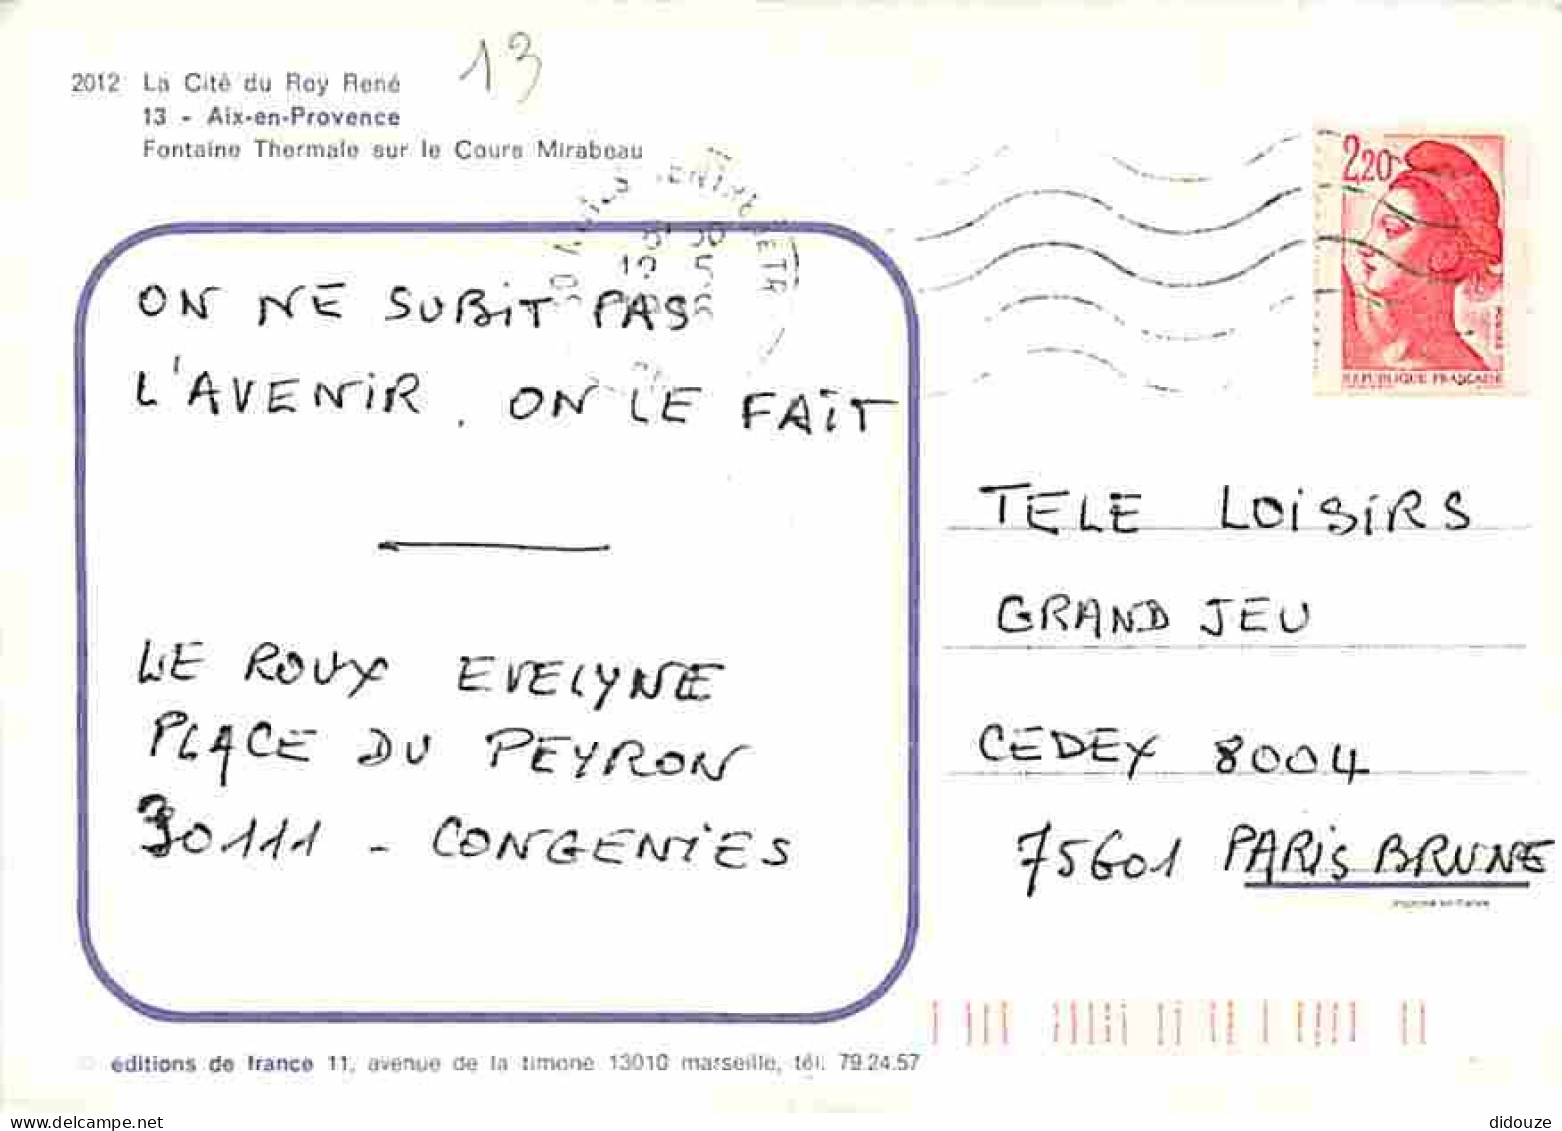 13
2012 La Cité du Roy René
13 - Aix-en-Provence
Fontaine Thermale sur le Cours Mirabeau
2,20
POSTES
REPUBLIQUE FRANÇAISE
ON NE SUBIT PAS
L'AVENIR. ON LE FAIT
LE ROUX EVELYNE
PLACE DU PEYRON
30111 - CONGENIES
TELE LOISIRS
GRAND JEU
CEDEX 8004
75601 PARIS BRUNE
imprimé en France
éditions de france 11, avenue de la timone 13010 marseille, tél. 79.24.57
didouze